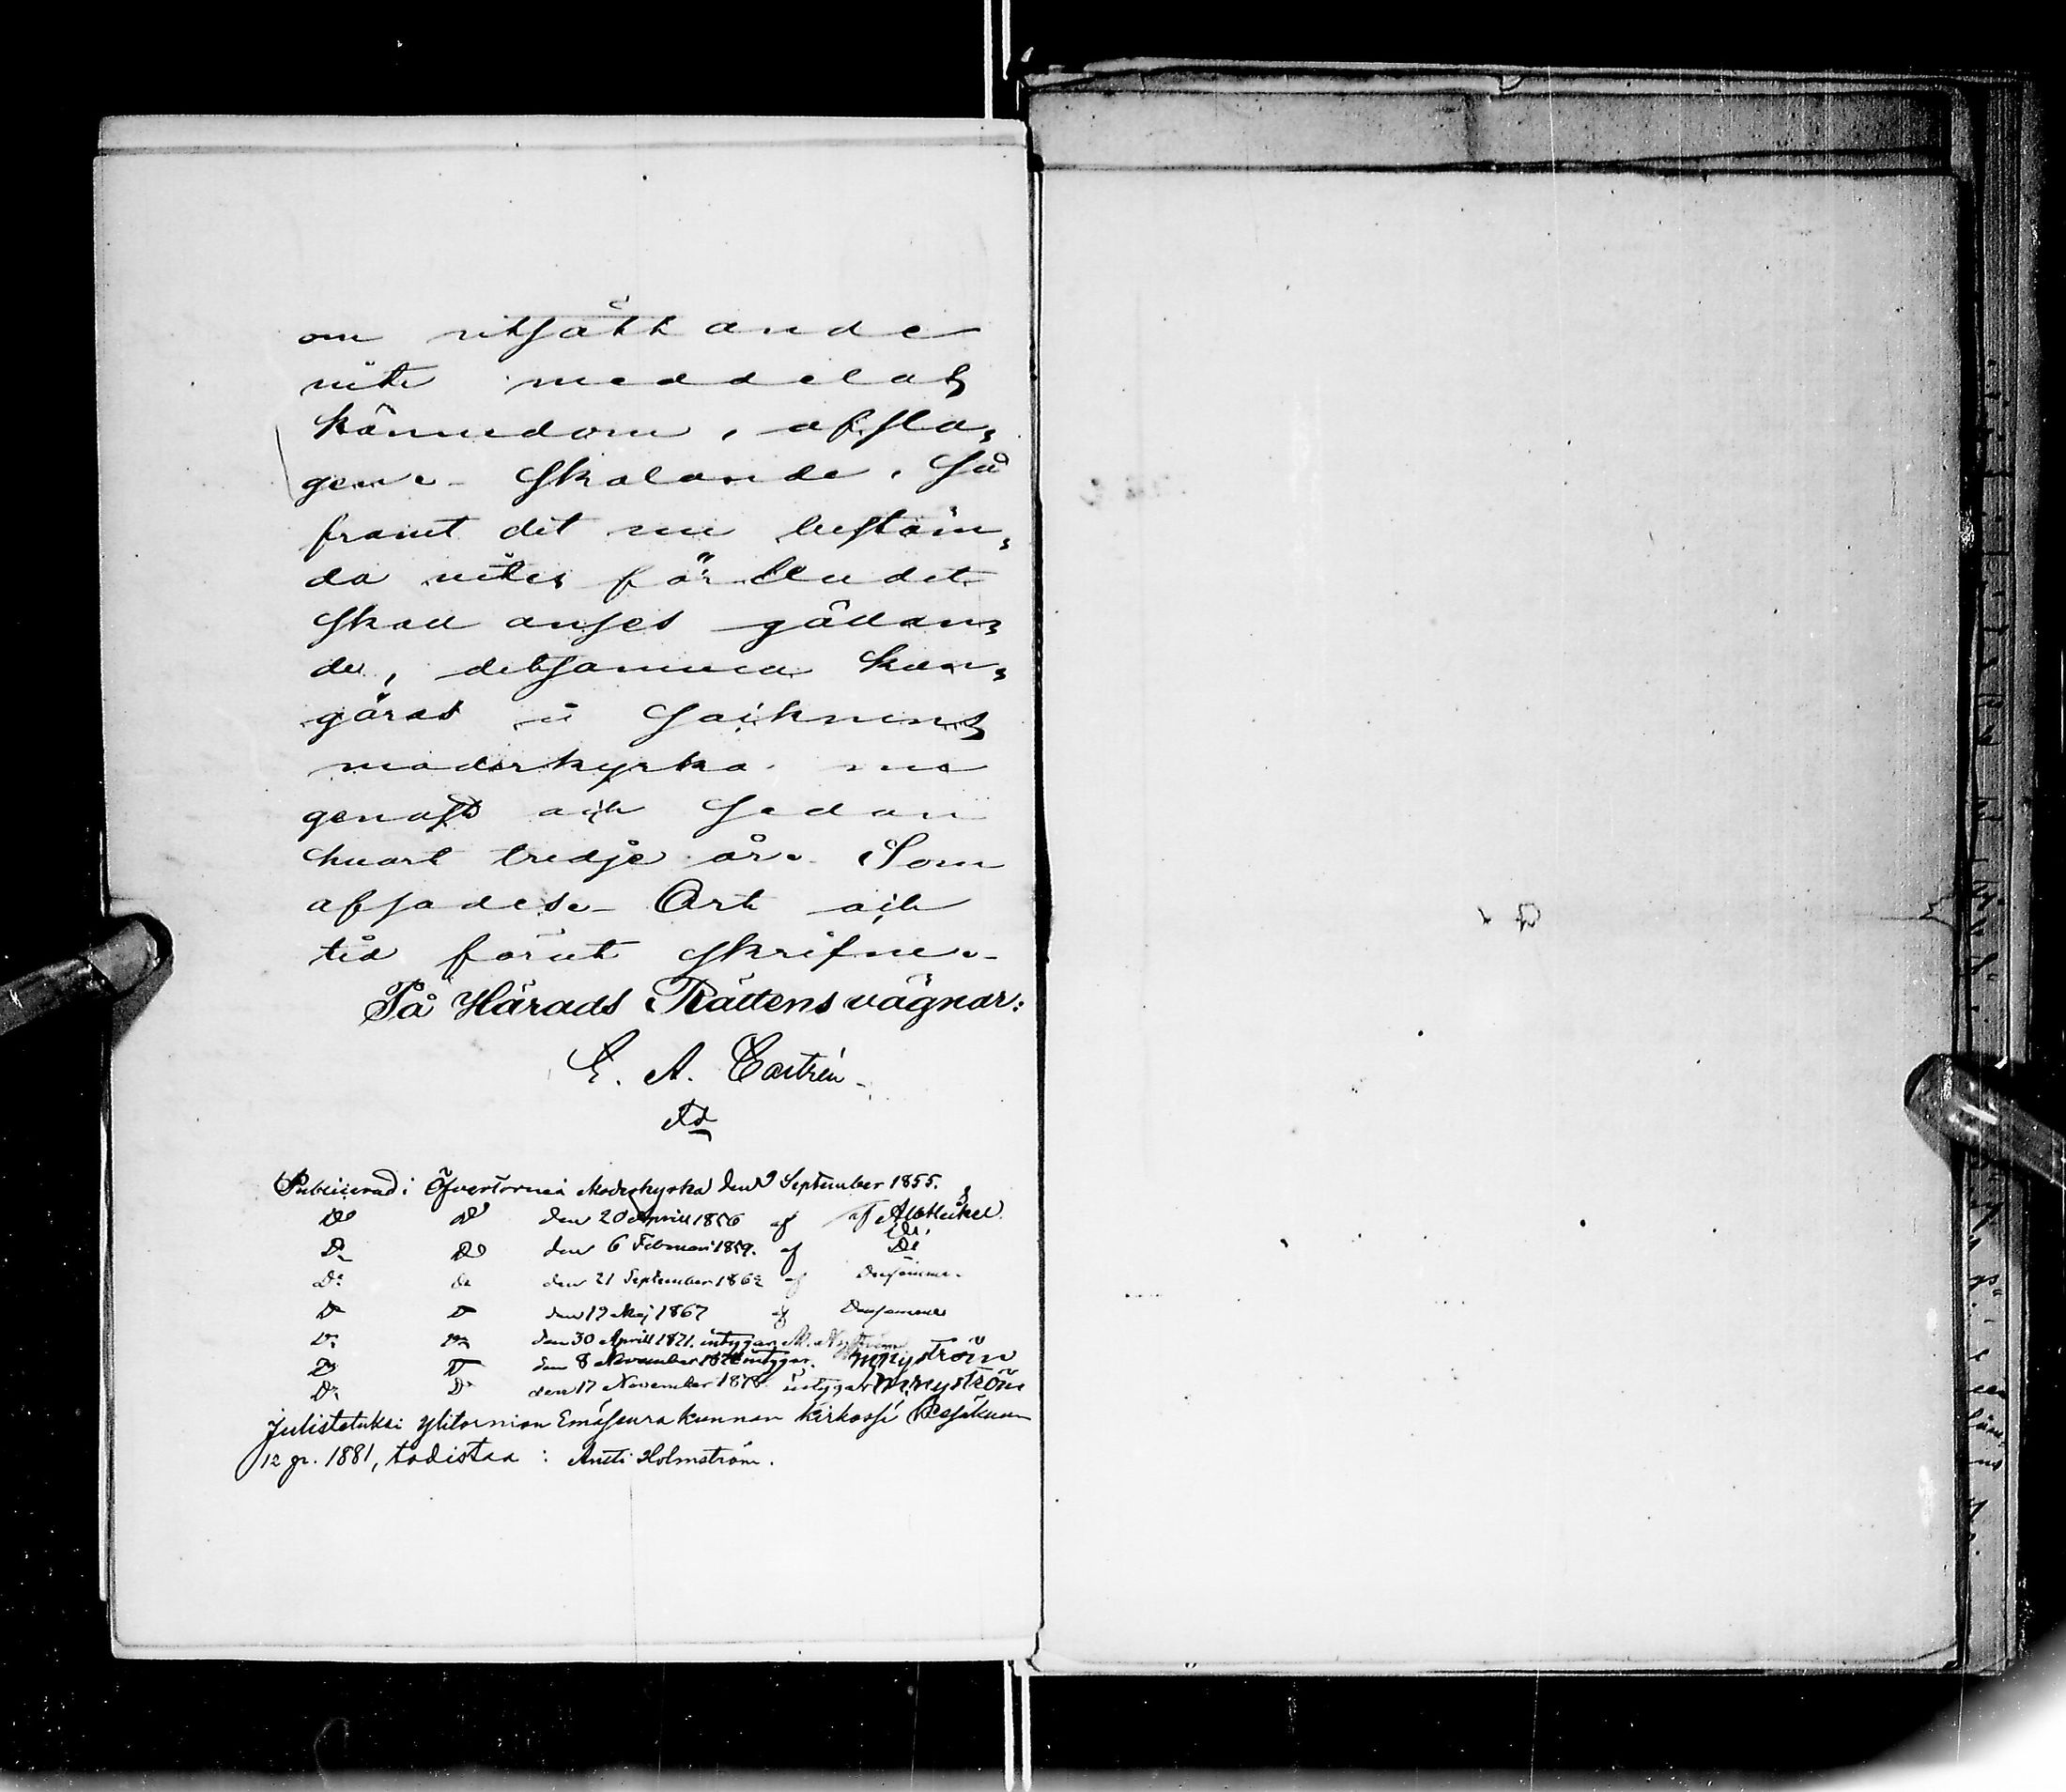 om utsättande
vite meddelas
kännedom, afsla,
gen. Skolande, så
framt det nu bestäm,
da vites förbudet
skall anses gällan,
de, detsamma kun,
göras i Socknens
moderkyrka nu
genast och sedan
hvart tredje år. Som
afsades. Ort och
tid förut skrifne.
På Härads Rättens vägnar:
E. A. Castrén
Publicerad i Öfvertorneå Moderkyrka den 9 September 1855.
Do Do den 20 Aprill 1856 af
Do Do den 6 Februari 1859. af Do
Do Do den 21 September 1862 af Densamme.
Do Do den 19 Maj 1867 af Densamme
Do Do den 30 Aprill 1871. intygar M. Nyström
Do Do den 8 November intygar. M Nyström
Do Do den 17 November 1878. intygar M. Nyström
Julistetuksi Ylitornion Emäseurakunnan kirkossa Kesäkuun
12 p. 1881, todistaa: Antti Holmström.